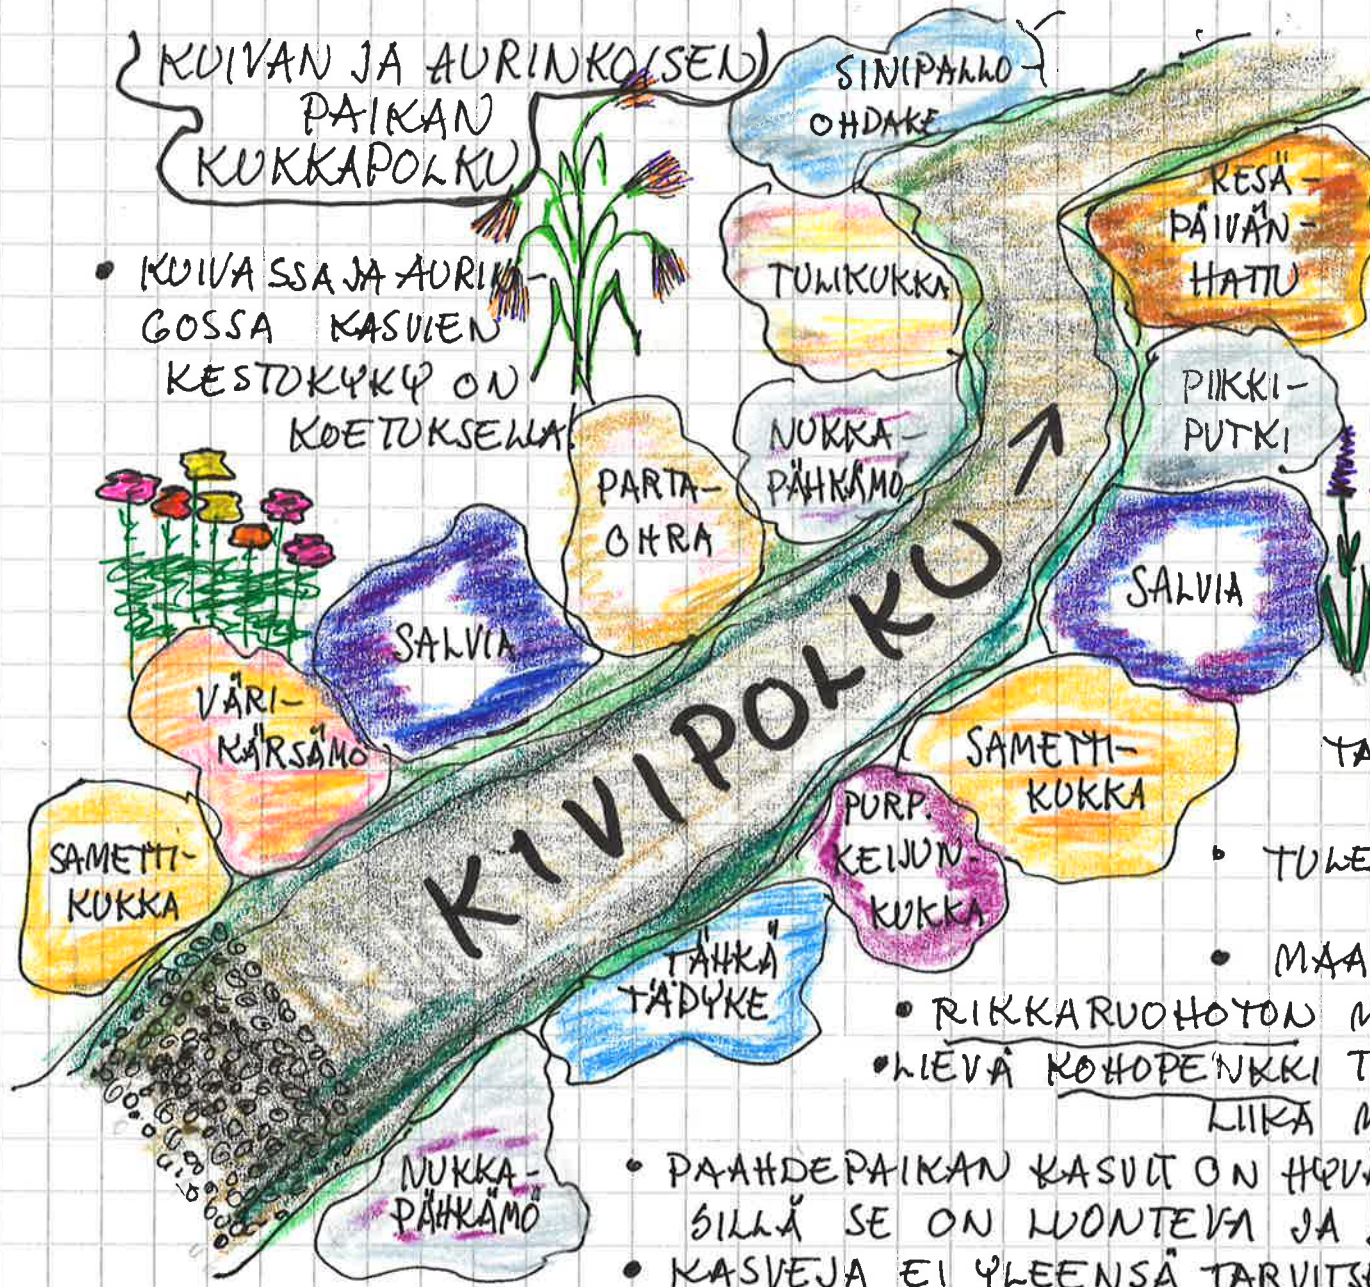 KUIVAN JA AURINKOISEN
PAIKAN
KUKKAPOLKU
• KUIVASSA JA AURIN-
GOSSA KASVIEN
KESTOKYKY ON
KOETUKSELLA
SINIPALLO-
OHDAKE
TULIKUKKA
KESÄ-
PÄIVÄN-
HATTU
NUKKA-
PÄHKÄMÖ
PIIKKI-
PUTKI
PARTA-
OHRA
SALVIA
SALVIA
VÄRI-
KÄRSÄMÖ
SAMETTI-
KUKKA
KIVIPOLKU
SAMETTI-
KUKKA
PURP.
KEIJUN-
KUKKA
TÄHKÄ
TÄDYKE
NUKKA-
PÄHKÄMÖ
TA
• TULE
• MAA
• RIKKARUOHOTON M
• LIEVÄ KOHOPENKKI T
LIIKA
• PAAHDEPAIKAN KASVIT ON HYVÄ
SILLÄ SE ON LUONTEVA JA
• KASVEJA EI YLEENSÄ TARVITS